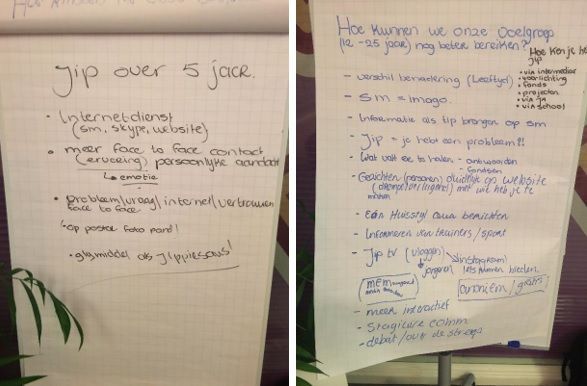 Jip over 5 jaar.
• Internetdienst
(sm, skype, website)
• meer face to face contact
(ervaring) persoonlijke aandacht
↳ emotie
• probleem/vraag/internet/vertrouwen
face to face
'op poster foto pand!
• glijmiddel als Jippiesaus!
Hoe kunnen we onze doelgroep
(12 - 25 jaar) nog beter bereiken?
Hoe ken je het
Jip
• via intermediair
• voorlichting
• fonds
• projecten
• via JA
• via school
- verschil benadering (Leeftijd)
- Sm = imago.
- Informatie als tip brengen op sm
- Jip = je hebt een probleem?!
- Wat valt er te halen - antwoorden
- fondsen
- Gezichten (personen) duidelijk op website
(drempelverlagend) met wie heb je te
maken
- Eén Huisstijl qua berichten
- Informeren van trainers / sport
- Jip tv (vloggen) → Instagram
jongeren iets kunnen bieden.
anoniem / gratis
- meer interactief
- Stagiaire comm
- debat / out de streep